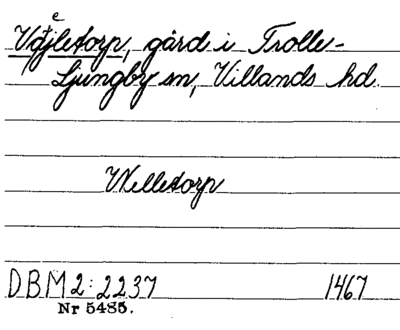 e
Väjletorp, gård i Trolle-
Ljungby sn, Villands hd.
Welletorp
DBM 2:2237 1467
Nr 5485.